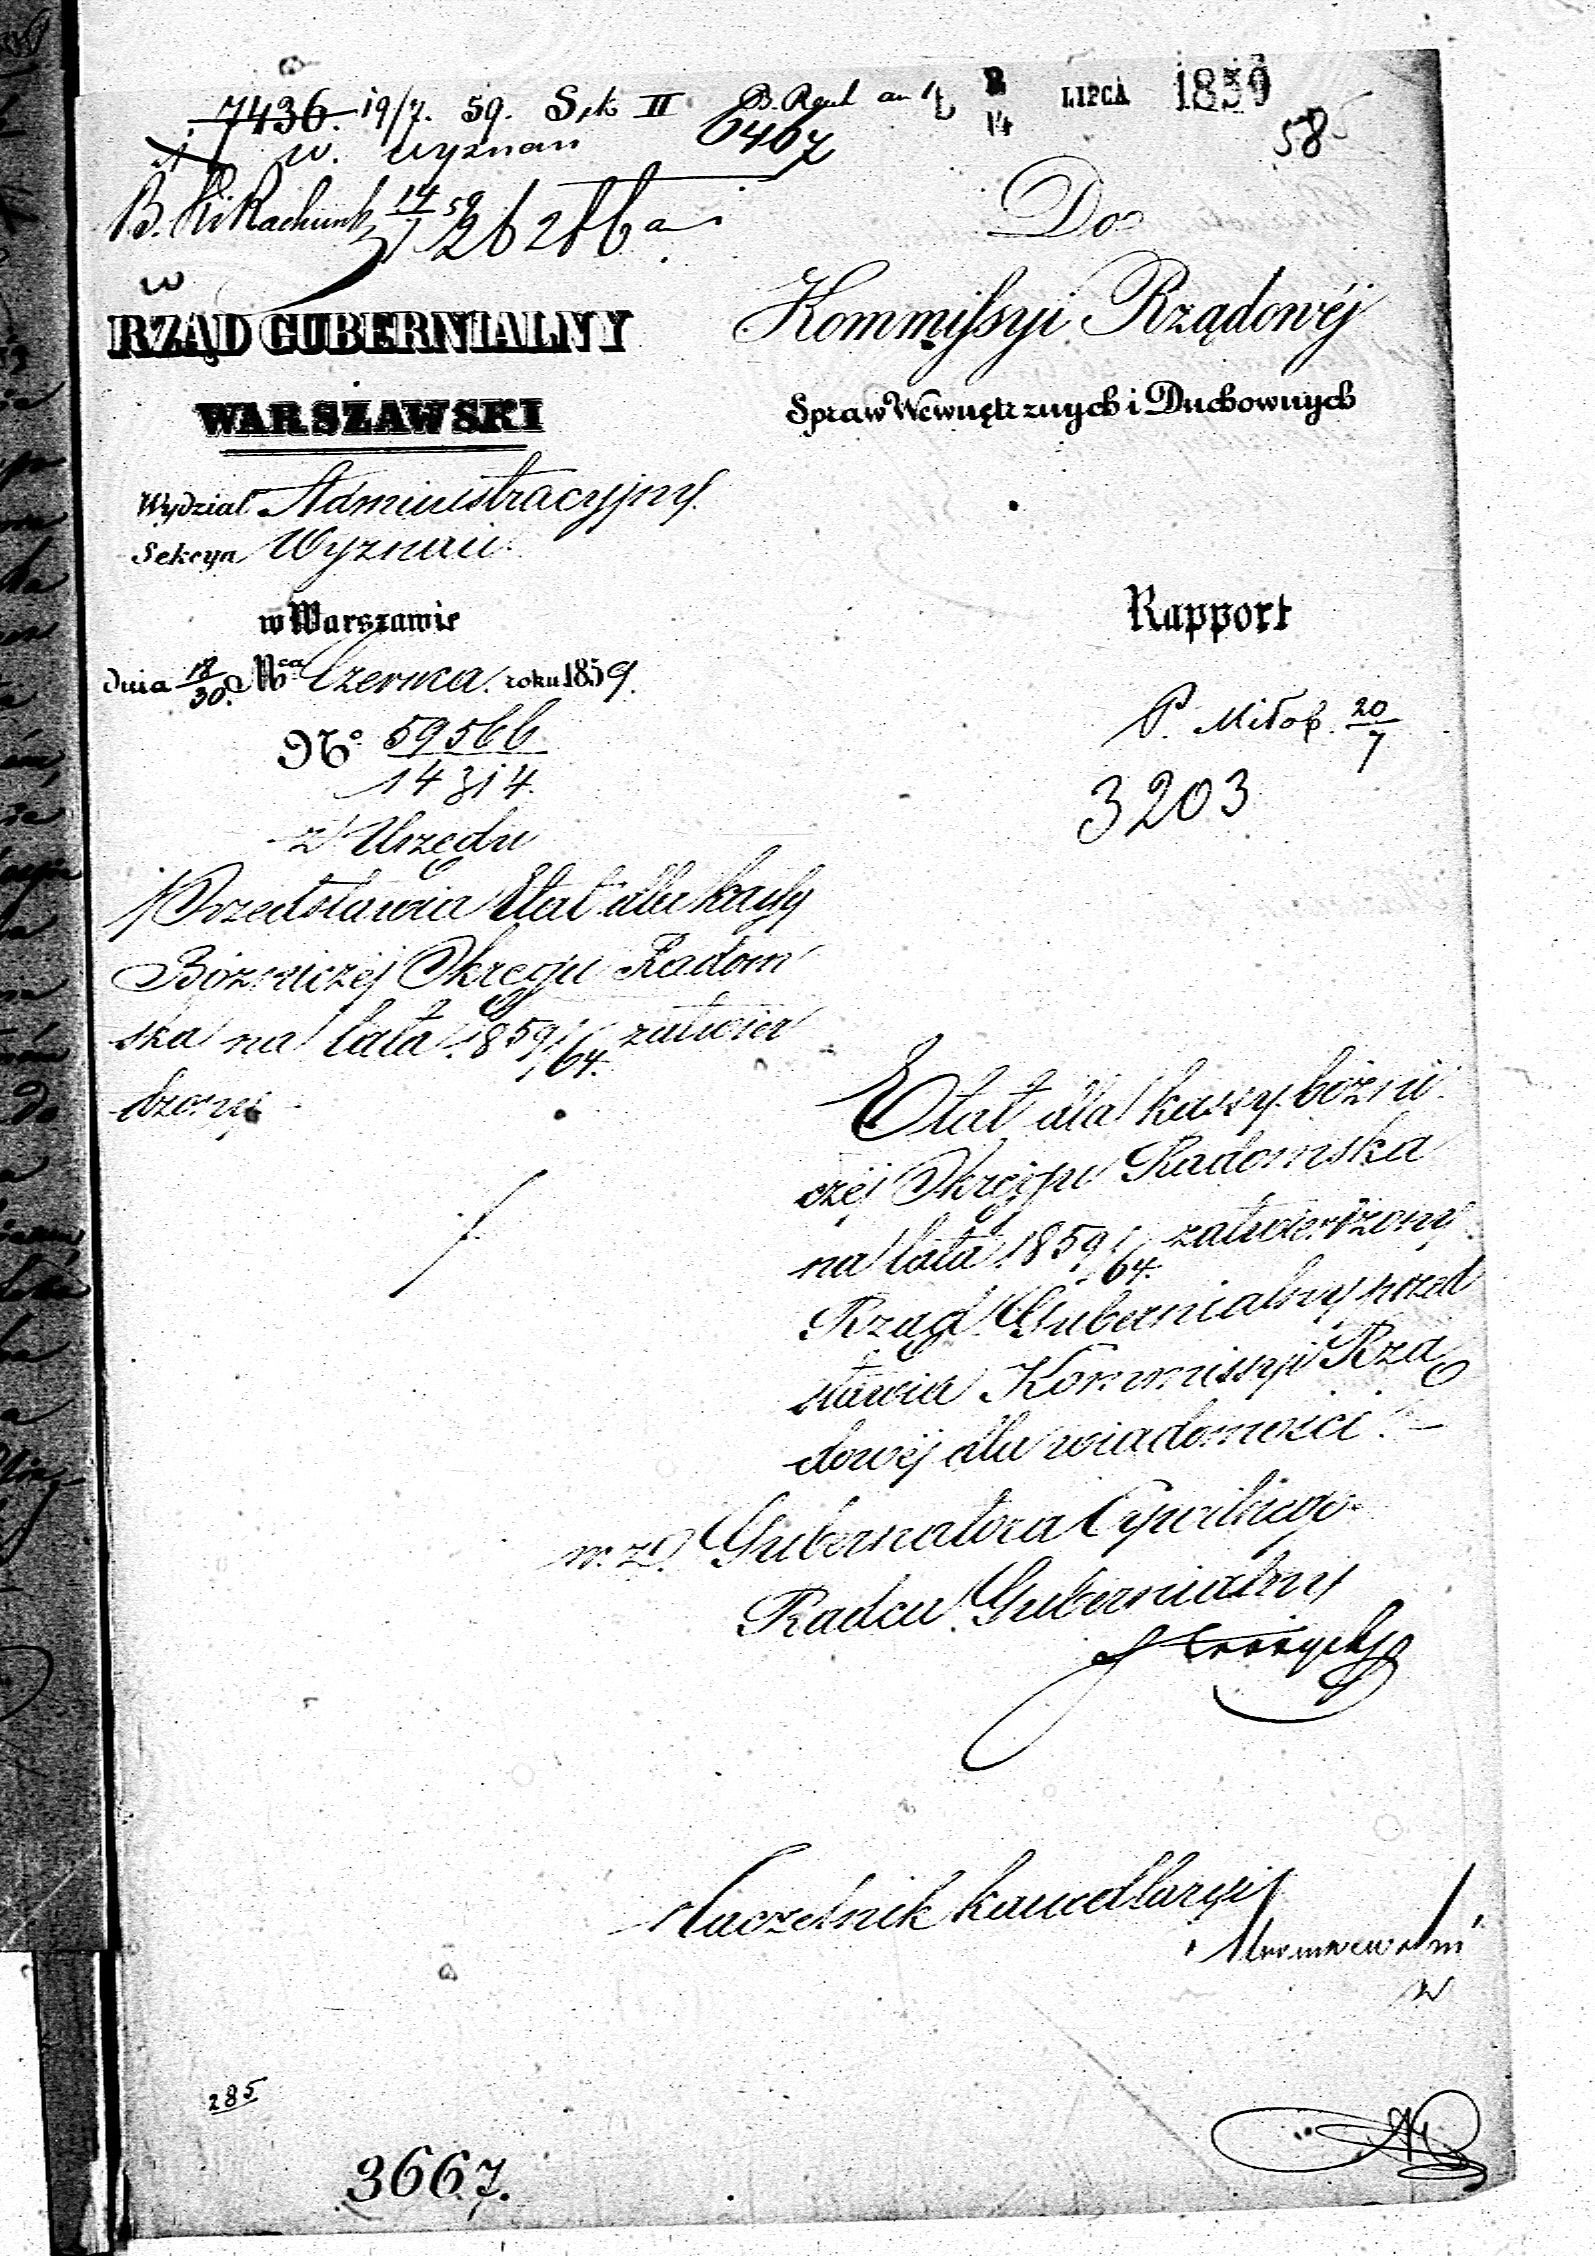 7436. 19/7. 59. Sek II
w. wyznań
B. Rgul
6407
2/14 LIPCA 1859
58
B. Rachunk 14/7 59
w
RZĄD GUBERNIALNY
WARSZAWSKI
Wydział Administracyjny.
Sekcya Wyznań.
w Warszawie
dnia 18/30 Czerwca. roku 1859.
No 59566
14314.
z Urzędu
Przedstawia Etat dla kassy
Bóżniczéj Okręgu Radom
ska na lata 1859/64. zatwier
dzony
Do
Kommissyi Rządowéj
Spraw Wewnętrznych i Duchownych
Rapport
P. Miłob. 20/7
3203
Etat dla kassy bóżni
czéj Okręgu Radomska
na lata 1859/64. zatwierdzony
Rząd Gubernialny przed
stawia Kommissyi Rzą
dowéj dla wiadomości.
w. z. Gubernatora Cywilnego
Radca Gubernialny
Naczelnik kancellaryi
285
3667.